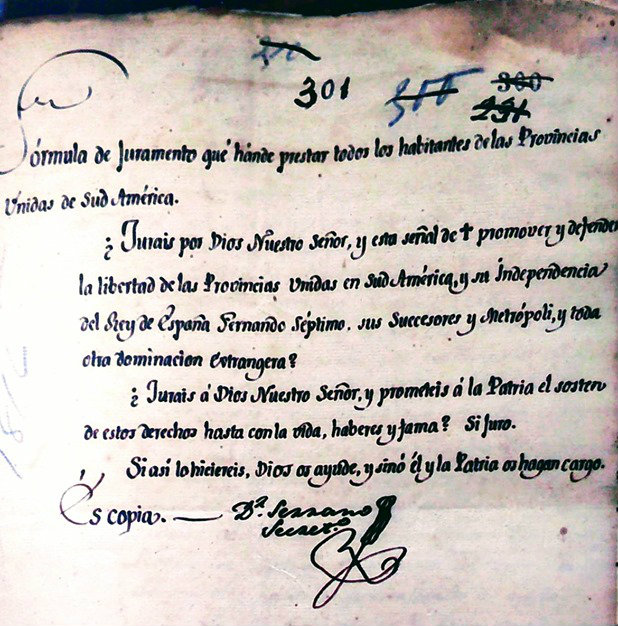 301 355 300
291
Fórmula de Juramento qué hánde prestar todos los habitantes de las Provincias
Unidas de Sud América.
¿ Jurais por Dios Nuestro Señor, y esta señal de ✝ promover y defender
la libertad de las Provincias Unidas en Sud América, y su Independencia
del Rey de España Fernando Séptimo, sus Succesores y Metrópoli, y toda
otra dominacion extrangera?
¿ Jurais á Dios Nuestro Señor, y prometeis á la Patria el sosten
de estos derechos hasta con la vida, haberes y fama? Si Juro.
Si asi lo hiciereis, Dios os ayude, y sinó él y la Patria os hagan cargo.
Es copia. — D.r Serrano
Secret.o